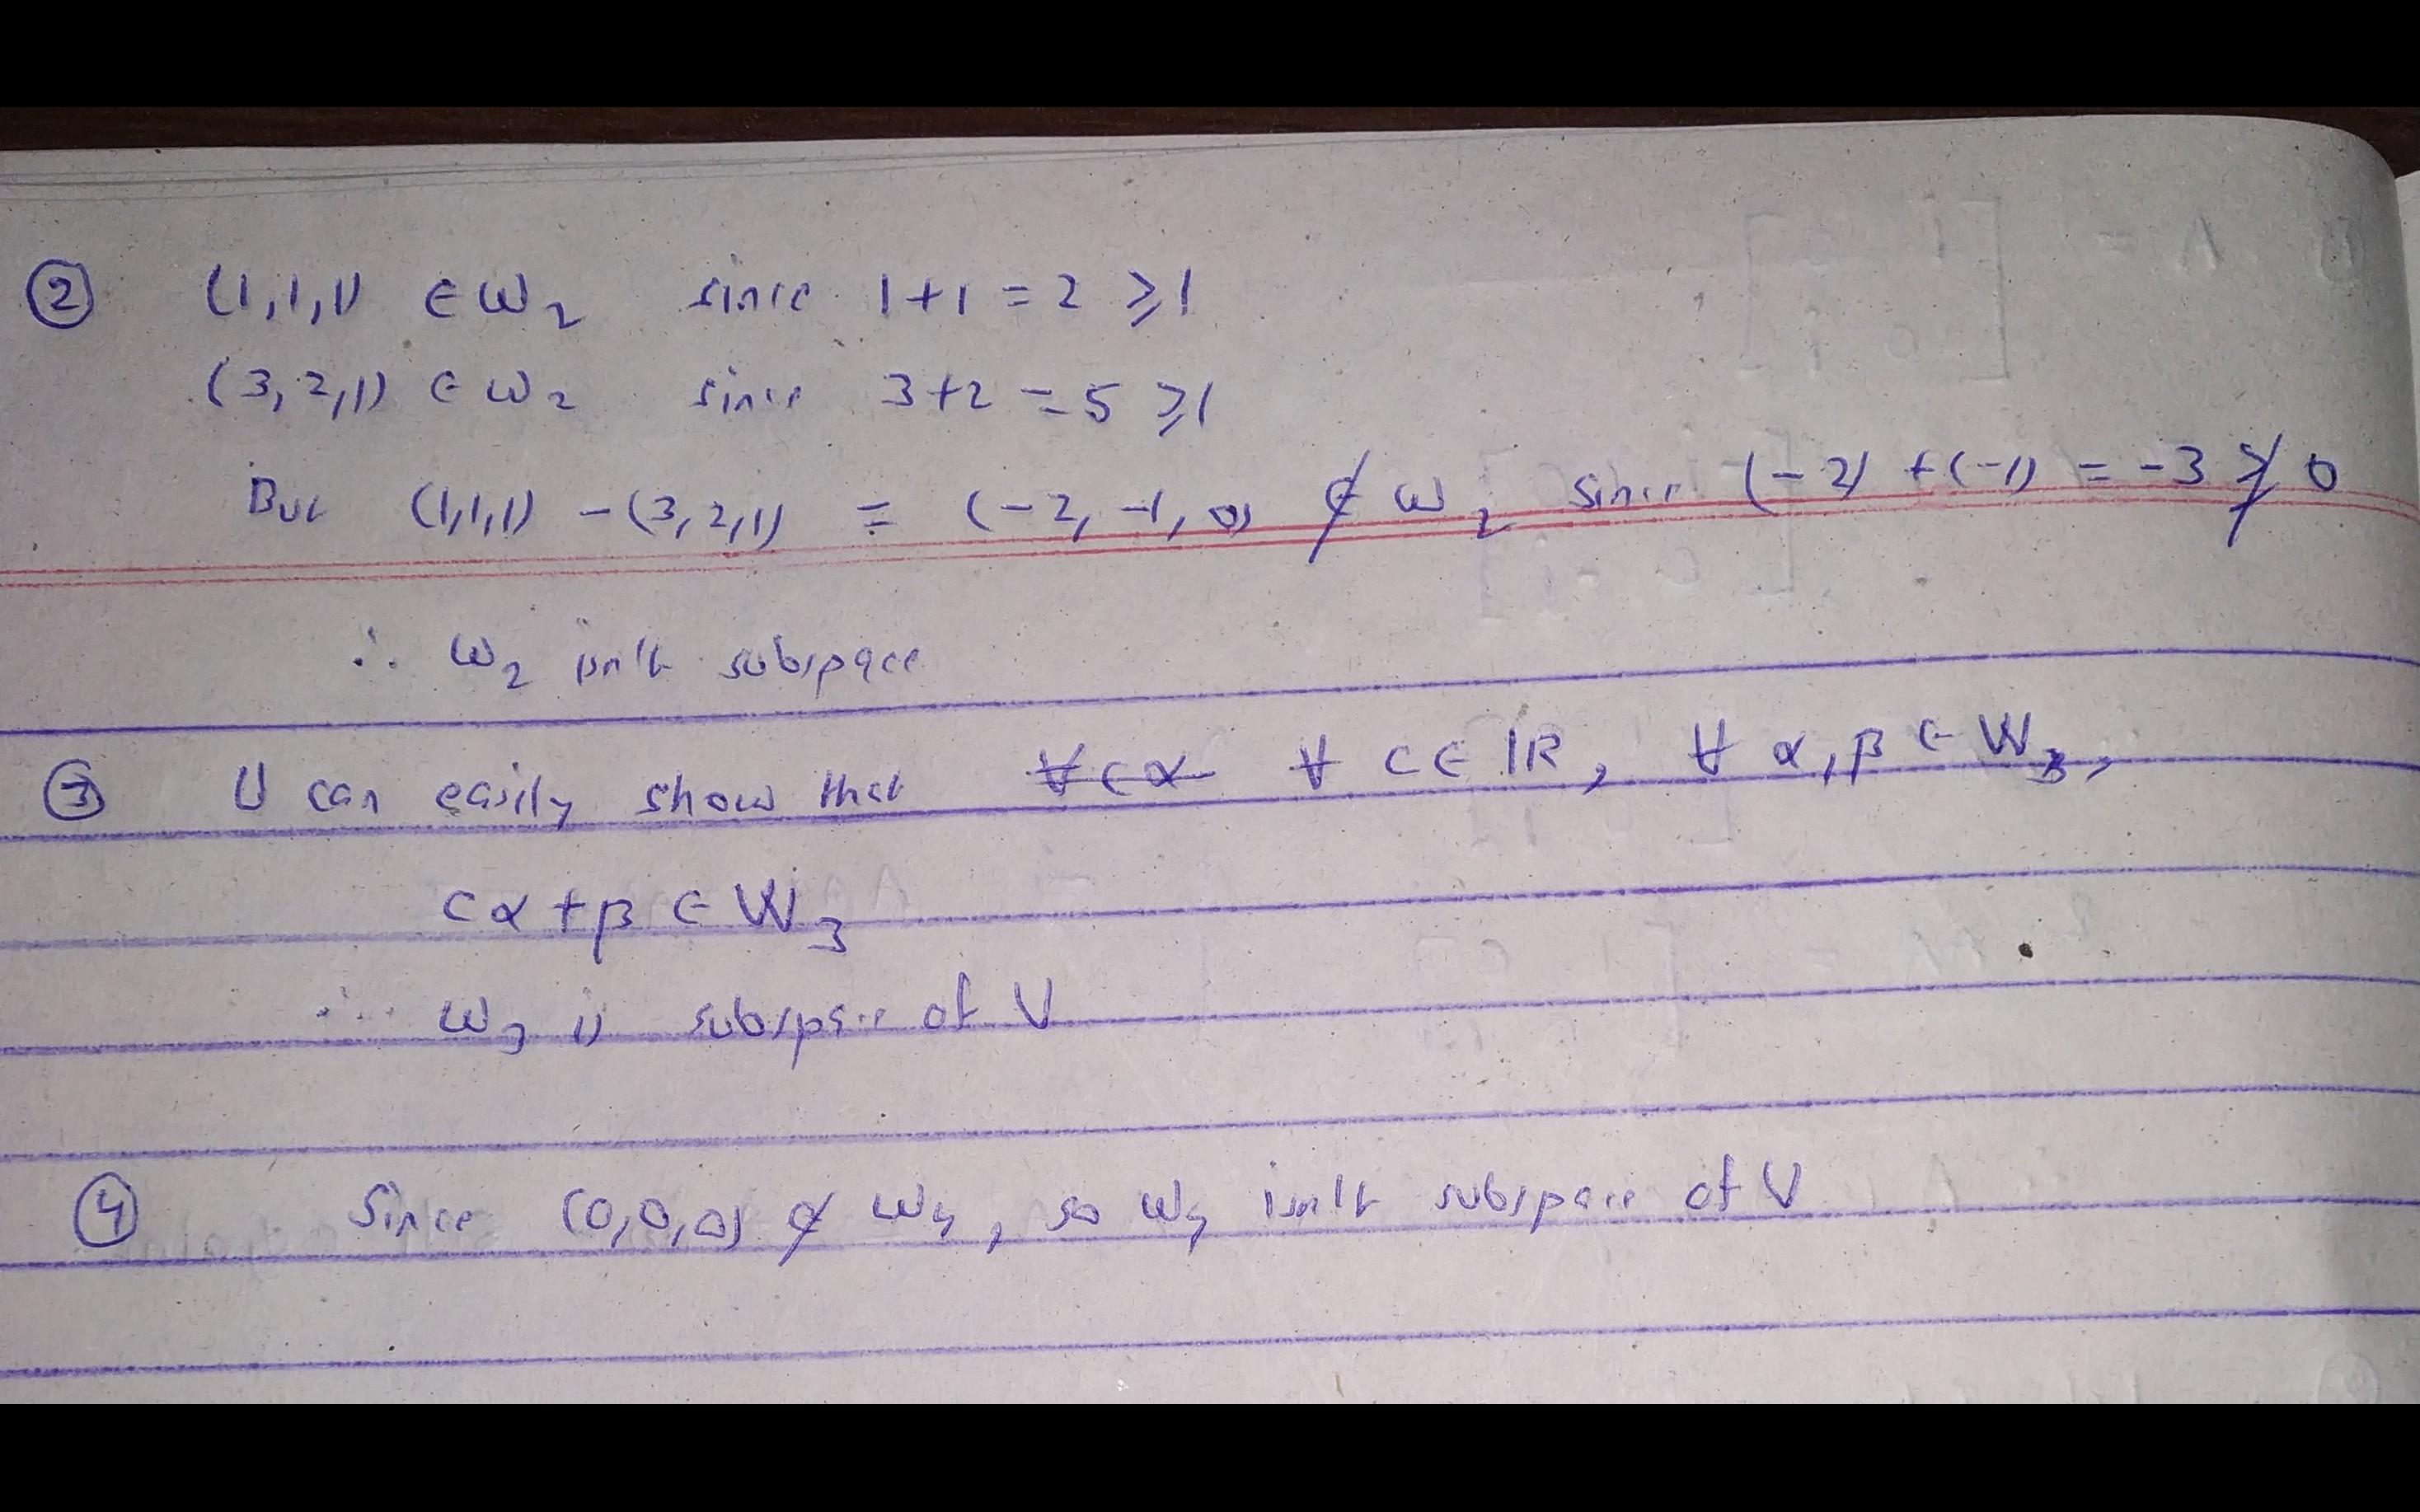 ② (1,1,1) ∈ W₂ since 1+1 = 2 ⩾1
(3,2,1) ∈ W₂ since 3+2 = 5 ⩾1
But (1,1,1) - (3,2,1) = (-2, -1, 0) ∉ W₂ since (-2) + (-1) = -3 ≱ 0
∴ W₂ isn't subspace
③ U can easily show that ∀ c ∈ ℝ, ∀ α,β ∈ W₃,
cα + β ∈ W₃
∴ W₃ is subspace of V
④ Since (0,0,0) ∉ W₄, so W₄ isn't subspace of V